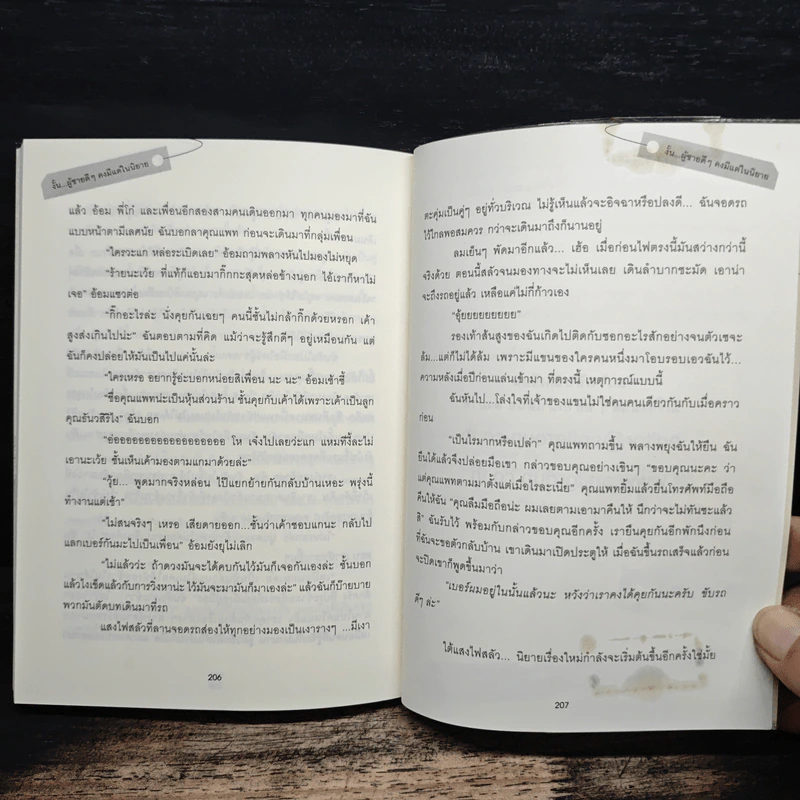 งั้น...ผู้ชายดีๆ คงมีแต่ในนิยาย
แล้ว อ้อม พี่โก๋ และเพื่อนอีกสองสามคนเดินออกมา ทุกคนมองมาที่ฉัน
แบบหน้าตามีเลศนัย ฉันบอกลาคุณแพท ก่อนจะเดินมาที่กลุ่มเพื่อน
"ใครวะแก หล่อระเบิดเลย" อ้อมถามพลางหันไปมองไม่หยุด
"ร้ายนะเว้ย ที่แท้ก็แอบมากิ๊กกะสุดหล่อข้างนอก ไอ้เราก็หาไม่
เจอ" อ้อมแซวต่อ
"กิ๊กอะไรล่ะ นั่งคุยกันเฉยๆ คนนี้ชั้นไม่กล้ากิ๊กด้วยหรอก เค้า
สูงส่งเกินไปน่ะ" ฉันตอบตามที่คิด แม้ว่าจะรู้สึกดีๆ อยู่เหมือนกัน แต่
ฉันก็คงปล่อยให้มันเป็นไปแค่นั้นล่ะ
"ใครเหรอ อยากรู้อ่ะบอกหน่อยสิเพื่อน นะ นะ" อ้อมเซ้าซี้
"ชื่อคุณแพทน่ะเป็นหุ้นส่วนร้าน ชั้นคุยกับเค้าได้เพราะเค้าเป็นลูก
คุณธันวสิริไง" ฉันบอก
"อ๋ออออออออออออออออออออ โห เจ๋งไปเลยว่ะแก แหมทีงี้ละไม่
เอานะเว้ย ชั้นเห็นเค้ามองตามแกมาด้วยล่ะ"
"วุ้ย... พูดมากจริงหล่อน ไป๊แยกย้ายกันกลับบ้านเหอะ พรุ่งนี้
ทำงานแต่เช้า"
"ไม่สนจริงๆ เหรอ เสียดายออก...ชั้นว่าเค้าชอบแกนะ กลับไป
แลกเบอร์กันมะไปเป็นเพื่อน" อ้อมยังยุไม่เลิก
"ไม่แล้วว่ะ ถ้าดวงมันจะได้คบกันไว้มันก็เจอกันเองล่ะ ชั้นบอก
แล้วไงเข็ดแล้วกับการวิ่งหาน่ะ ไว้มันจะมามันก็มาเองล่ะ" แล้วฉันก็บ๊ายบาย
พวกมันตัดบทเดินมาที่รถ
แสงไฟสลัวที่ลานจอดรถส่องให้ทุกอย่างมองเป็นเงารางๆ ...มีเงา
206
งั้น...ผู้ชายดีๆ คงมีแต่ในนิยาย
ตะคุ่มเป็นคู่ๆ อยู่ทั่วบริเวณ ไม่รู้เห็นแล้วจะอิจฉาหรือปลงดี... ฉันจอดรถ
ไว้ไกลพอสมควร กว่าจะเดินมาถึงก็นานอยู่
ลมเย็นๆ พัดมาอีกแล้ว... เฮ้อ เมื่อก่อนไฟตรงนี้มันสว่างกว่านี้
จริงด้วย ตอนนี้สลัวจนมองทางจะไม่เห็นเลย เดินลำบากชะมัด เอาน่า
จะถึงรถอยู่แล้ว เหลือแค่ไม่กี่ก้าวเอง
"อุ้ยยยยยยยยย"
รองเท้าส้นสูงของฉันเกิดไปติดกับซอกอะไรสักอย่างจนตัวเซจะ
ล้ม...แต่ก็ไม่ได้ล้ม เพราะมีแขนของใครคนหนึ่งมาโอบรอบเอวฉันไว้...
ความหลังเมื่อปีก่อนแล่นเข้ามา ที่ตรงนี้ เหตุการณ์แบบนี้
ฉันหันไป...โล่งใจที่เจ้าของแขนไม่ใช่คนคนเดียวกันกับเมื่อคราว
ก่อน
"เป็นไรมากหรือเปล่า" คุณแพทถามขึ้น พลางพยุงฉันให้ยืน ฉัน
ยืนได้แล้วจึงปล่อยมือเขา กล่าวขอบคุณอย่างเขินๆ "ขอบคุณนะคะ ว่า
แต่คุณแพทตามมาตั้งแต่เมื่อไรละเนี่ย" คุณแพทยิ้มแล้วยื่นโทรศัพท์มือถือ
คืนให้ฉัน "คุณลืมมือถือน่ะ ผมเลยตามเอามาคืนให้ นึกว่าจะไม่ทันซะแล้ว
สิ" ฉันรับไว้ พร้อมกับกล่าวขอบคุณอีกครั้ง เรายืนคุยกันอีกพักนึงก่อน
ที่ฉันจะขอตัวกลับบ้าน เขาเดินมาเปิดประตูให้ เมื่อฉันขึ้นรถเสร็จแล้วก่อน
จะปิดเขาก็พูดขึ้นมาว่า
"เบอร์ผมอยู่ในนั้นแล้วนะ หวังว่าเราคงได้คุยกันนะครับ ขับรถ
ดีๆ ล่ะ"
ใต้แสงไฟสลัว... นิยายเรื่องใหม่กำลังจะเริ่มต้นขึ้นอีกครั้งใช่มั้ย
207